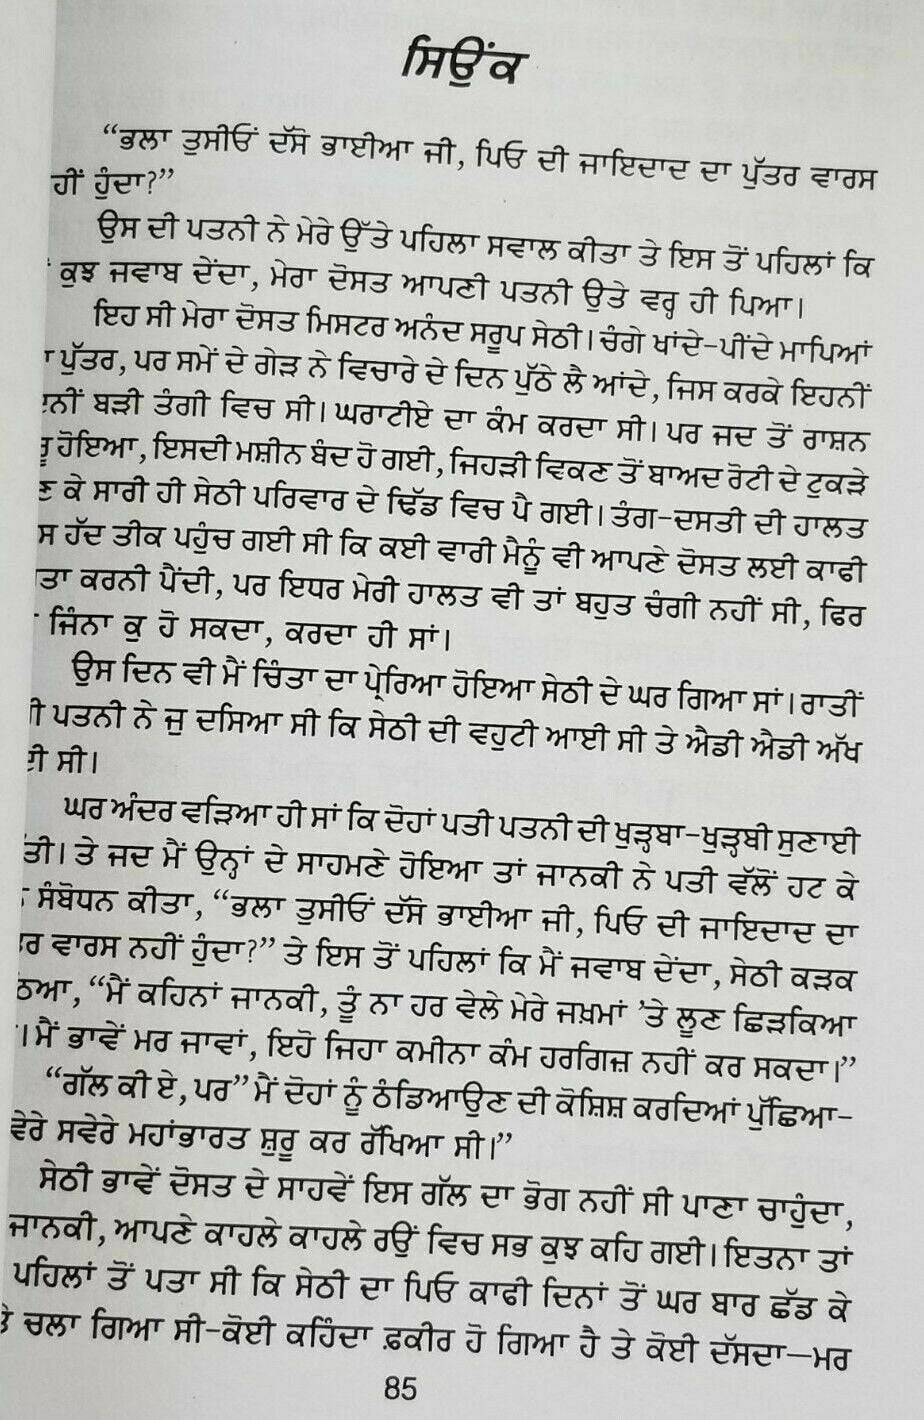 ਸਿਉਂਕ
“ਭਲਾ ਤੁਸੀਓਂ ਦੱਸੋ ਭਾਈਆ ਜੀ, ਪਿਓ ਦੀ ਜਾਇਦਾਦ ਦਾ ਪੁੱਤਰ ਵਾਰਸ
ਹੀਂ ਹੁੰਦਾ?”
ਉਸ ਦੀ ਪਤਨੀ ਨੇ ਮੇਰੇ ਉੱਤੇ ਪਹਿਲਾ ਸਵਾਲ ਕੀਤਾ ਤੇ ਇਸ ਤੋਂ ਪਹਿਲਾਂ ਕਿ
ਕੁਝ ਜਵਾਬ ਦੇਂਦਾ, ਮੇਰਾ ਦੋਸਤ ਆਪਣੀ ਪਤਨੀ ਉਤੇ ਵਰ੍ਹ ਹੀ ਪਿਆ।
ਇਹ ਸੀ ਮੇਰਾ ਦੋਸਤ ਮਿਸਟਰ ਅਨੰਦ ਸਰੂਪ ਸੇਠੀ। ਚੰਗੇ ਖਾਂਦੇ-ਪੀਂਦੇ ਮਾਪਿਆਂ
ਪੁੱਤਰ, ਪਰ ਸਮੇਂ ਦੇ ਗੇੜ ਨੇ ਵਿਚਾਰੇ ਦੇ ਦਿਨ ਪੁੱਠੇ ਲੈ ਆਂਦੇ, ਜਿਸ ਕਰਕੇ ਇਹਨੀਂ
ਨੀਂ ਬੜੀ ਤੰਗੀ ਵਿਚ ਸੀ। ਘਰਾਟੀਏ ਦਾ ਕੰਮ ਕਰਦਾ ਸੀ। ਪਰ ਜਦ ਤੋਂ ਰਾਸ਼ਨ
ਰੂ ਹੋਇਆ, ਇਸਦੀ ਮਸ਼ੀਨ ਬੰਦ ਹੋ ਗਈ, ਜਿਹੜੀ ਵਿਕਣ ਤੋਂ ਬਾਅਦ ਰੋਟੀ ਦੇ ਟੁਕੜੇ
ਣ ਕੇ ਸਾਰੀ ਹੀ ਸੇਠੀ ਪਰਿਵਾਰ ਦੇ ਢਿੱਡ ਵਿਚ ਪੈ ਗਈ। ਤੰਗ-ਦਸਤੀ ਦੀ ਹਾਲਤ
ਸ ਹੱਦ ਤੀਕ ਪਹੁੰਚ ਗਈ ਸੀ ਕਿ ਕਈ ਵਾਰੀ ਮੈਨੂੰ ਵੀ ਆਪਣੇ ਦੋਸਤ ਲਈ ਕਾਫੀ
ਤਾ ਕਰਨੀ ਪੈਂਦੀ, ਪਰ ਇਧਰ ਮੇਰੀ ਹਾਲਤ ਵੀ ਤਾਂ ਬਹੁਤ ਚੰਗੀ ਨਹੀਂ ਸੀ, ਫਿਰ
ਜਿੰਨਾ ਕੁ ਹੋ ਸਕਦਾ, ਕਰਦਾ ਹੀ ਸਾਂ।
ਉਸ ਦਿਨ ਵੀ ਮੈਂ ਚਿੰਤਾ ਦਾ ਪ੍ਰੇਰਿਆ ਹੋਇਆ ਸੇਠੀ ਦੇ ਘਰ ਗਿਆ ਸਾਂ। ਰਾਤੀਂ
ਪਤਨੀ ਨੇ ਜੁ ਦਸਿਆ ਸੀ ਕਿ ਸੇਠੀ ਦੀ ਵਹੁਟੀ ਆਈ ਸੀ ਤੇ ਐਡੀ ਐਡੀ ਅੱਖ
ਸੀ।
ਘਰ ਅੰਦਰ ਵੜਿਆ ਹੀ ਸਾਂ ਕਿ ਦੋਹਾਂ ਪਤੀ ਪਤਨੀ ਦੀ ਖੁੜ੍ਹਬਾ-ਖੁੜ੍ਹਬੀ ਸੁਣਾਈ
ਤੀ। ਤੇ ਜਦ ਮੈਂ ਉਨ੍ਹਾਂ ਦੇ ਸਾਹਮਣੇ ਹੋਇਆ ਤਾਂ ਜਾਨਕੀ ਨੇ ਪਤੀ ਵੱਲੋਂ ਹਟ ਕੇ
ਸੰਬੋਧਨ ਕੀਤਾ, “ਭਲਾ ਤੁਸੀਓਂ ਦੱਸੋ ਭਾਈਆ ਜੀ, ਪਿਓ ਦੀ ਜਾਇਦਾਦ ਦਾ
ਰ ਵਾਰਸ ਨਹੀਂ ਹੁੰਦਾ?” ਤੇ ਇਸ ਤੋਂ ਪਹਿਲਾਂ ਕਿ ਮੈਂ ਜਵਾਬ ਦੇਂਦਾ, ਸੇਠੀ ਕੜਕ
ਠਿਆ, “ਮੈਂ ਕਹਿਨਾਂ ਜਾਨਕੀ, ਤੂੰ ਨਾ ਹਰ ਵੇਲੇ ਮੇਰੇ ਜਖ਼ਮਾਂ ’ਤੇ ਲੂਣ ਛਿੜਕਿਆ
। ਮੈਂ ਭਾਵੇਂ ਮਰ ਜਾਵਾਂ, ਇਹੋ ਜਿਹਾ ਕਮੀਨਾ ਕੰਮ ਹਰਗਿਜ਼ ਨਹੀਂ ਕਰ ਸਕਦਾ।”
“ਗੱਲ ਕੀ ਏ, ਪਰ” ਮੈਂ ਦੋਹਾਂ ਨੂੰ ਠੰਡਿਆਉਣ ਦੀ ਕੋਸ਼ਿਸ਼ ਕਰਦਿਆਂ ਪੁੱਛਿਆ-
ਵੇਰੇ ਸਵੇਰੇ ਮਹਾਂਭਾਰਤ ਸ਼ੁਰੂ ਕਰ ਰੱਖਿਆ ਸੀ।”
ਸੇਠੀ ਭਾਵੇਂ ਦੋਸਤ ਦੇ ਸਾਹਵੇਂ ਇਸ ਗੱਲ ਦਾ ਭੋਗ ਨਹੀਂ ਸੀ ਪਾਣਾ ਚਾਹੁੰਦਾ,
ਜਾਨਕੀ, ਆਪਣੇ ਕਾਹਲੇ ਕਾਹਲੇ ਰਉਂ ਵਿਚ ਸਭ ਕੁਝ ਕਹਿ ਗਈ। ਇਤਨਾ ਤਾਂ
ਪਹਿਲਾਂ ਤੋਂ ਪਤਾ ਸੀ ਕਿ ਸੇਠੀ ਦਾ ਪਿਓ ਕਾਫੀ ਦਿਨਾਂ ਤੋਂ ਘਰ ਬਾਰ ਛੱਡ ਕੇ
ਚਲਾ ਗਿਆ ਸੀ-ਕੋਈ ਕਹਿੰਦਾ ਫ਼ਕੀਰ ਹੋ ਗਿਆ ਹੈ ਤੇ ਕੋਈ ਦੱਸਦਾ—ਮਰ
85